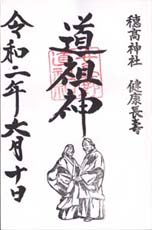 穂高神社 健康長寿
道祖神
令和二年六月十日